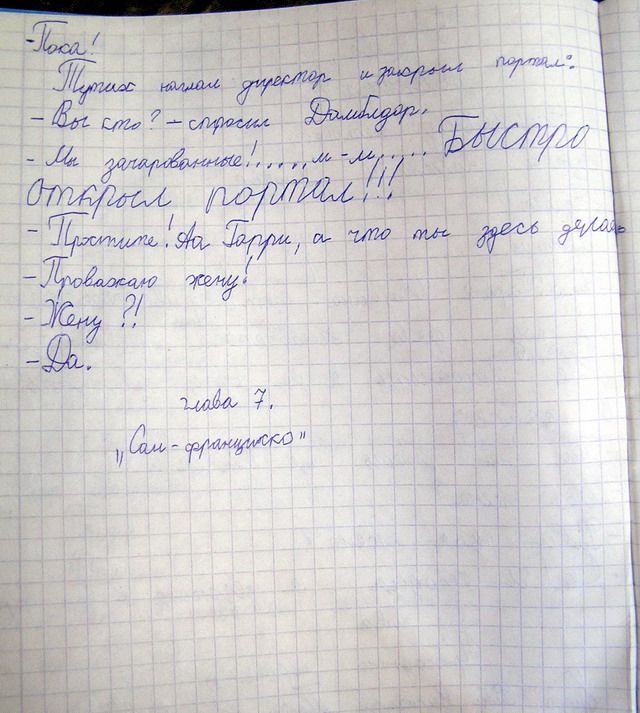 - Пока!
Тут их нашол директор и закрыл портал:
- Вы кто? - спросил Дамблдор.
- Мы зачарованные!.....м-м..... Быстро
открыл портал!!!
- Простите! Аа Гарри, а что ты здесь делаеш
- Проважаю жену!
- Жену?!
- Да.
глава 7.
„Сан-франциско"